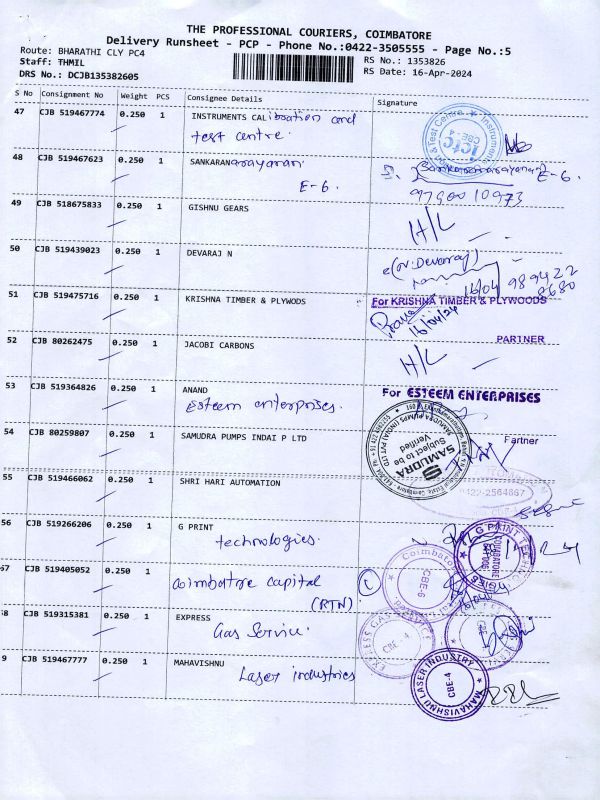 THE PROFESSIONAL COURIERS, COIMBATORE
Delivery Runsheet - PCP - Phone No.:0422-3505555 - Page No.:5
Route: BHARATHI CLY PC4
Staff: THMIL
DRS No.: DCJB135382605
RS No.: 1353826
RS Date: 16-Apr-2024
S No Consignment No Weight PCS Consignee Details Signature
47 CJB 519467774 0.250 1 INSTRUMENTS CALibration and
test centre.
48 CJB 519467623 0.250 1 SANKARANarayanan
E-6.
Sankaranarayanan E-6.
9790010973
49 CJB 518675833 0.250 1 GISHNU GEARS
H/L
50 CJB 519439023 0.250 1 DEVARAJ N
(N.Devaraj)
16/04 989422
8680
51 CJB 519475716 0.250 1 KRISHNA TIMBER & PLYWODS
For KRISHNA TIMBER & PLYWOODS
16/04/24
PARTNER
52 CJB 80262475 0.250 1 JACOBI CARBONS
H/L
53 CJB 519364826 0.250 1 ANAND
Esteem enterprises.
For ESTEEM ENTERPRISES
Partner
54 CJB 80259807 0.250 1 SAMUDRA PUMPS INDAI P LTD
SAMUDRA
Subject to be
Verified
55 CJB 519466062 0.250 1 SHRI HARI AUTOMATION
0422-2564667
56 CJB 519266206 0.250 1 G PRINT
technologies.
G PRINT TECHNOLOGIES
COIMBATORE
57 CJB 519405052 0.250 1 coimbatore capital
(RTN)
Coimbatore
CBE-6
58 CJB 519315381 0.250 1 EXPRESS
Gas Service.
EXPRESS GAS SERVICE
CBE-4
59 CJB 519467777 0.250 1 MAHAVISHNU
Laser industries
MAHAVISHNU LASER INDUSTRY
CBE-4